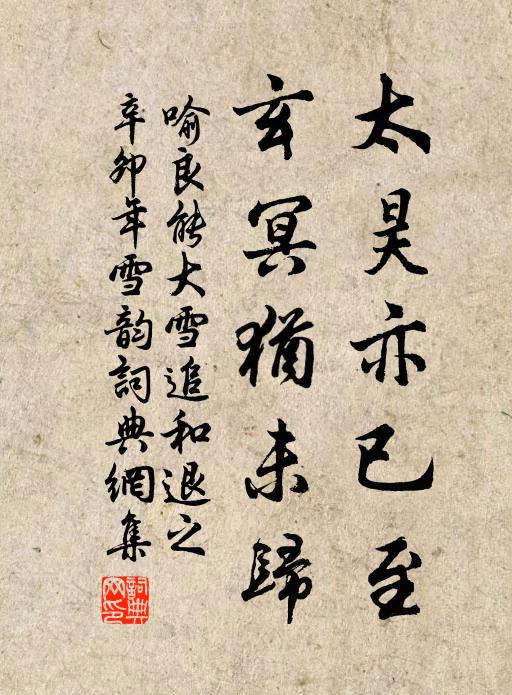 太昊亦已至
玄冥猶未歸
喻良能大雪追和退之
辛卯年雪韵詞典網集
詞典網印